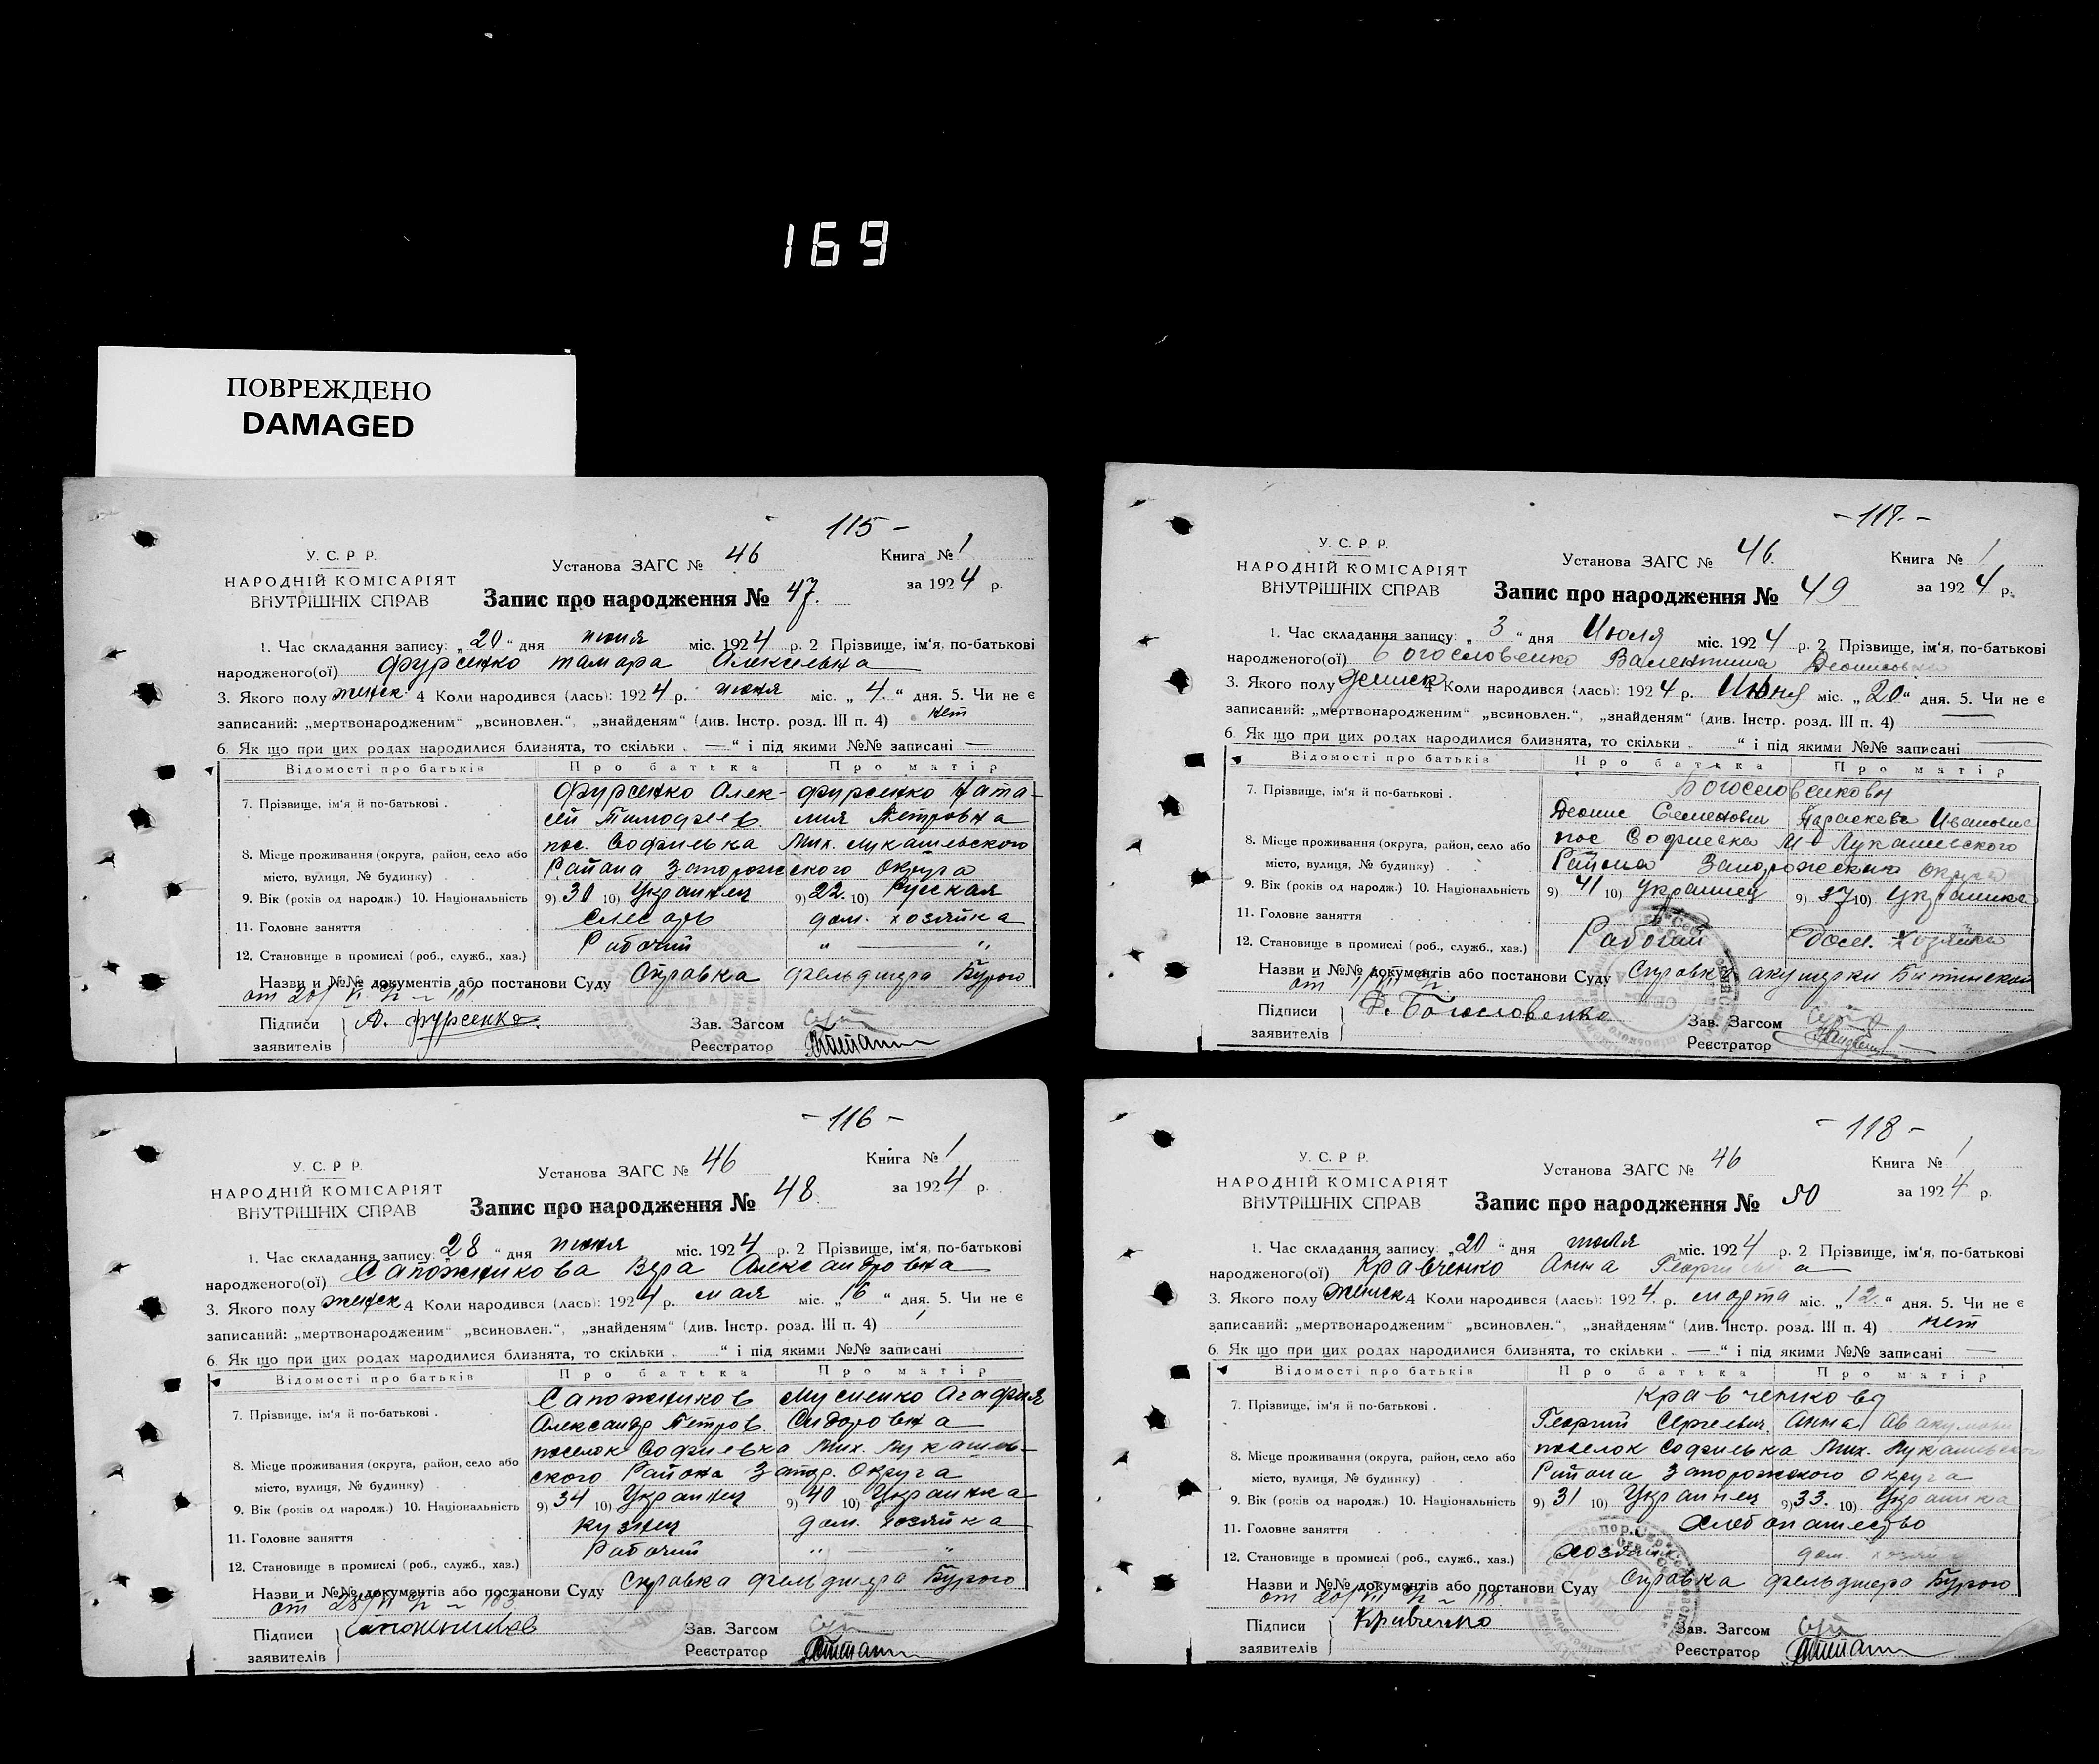 169
ПОВРЕЖДЕНО
DAMAGED
115 -
У. С. Р. Р.
НАРОДНІЙ КОМІСАРІЯТ
ВНУТРІШНІХ СПРАВ
Установа ЗАГС № 46
Книга № 1
за 1924 р.
Запис про народження № 47.
1. Час складання запису: „20“ дня июня міс. 1924 р. 2 Прізвище, ім‘я, по-батькові
народженого(ої) Фурсенко Тамара Алексевна
3. Якого полу женск. 4 Коли народився (лась): 1924 р. июня міс. „4“ дня. 5. Чи не є
записаний: „мертвонародженим“ „всиновлен.“, „знайденям“ (див. Інстр. розд. III п. 4) нет
6. Як що при цих родах народилися близнята, то скільки „—“ і під якими №№ записані —
Відомості про батьків Про батька Про матір
7. Прізвище, ім‘я й по-батькові . Фурсенко Алек- Фурсенко Ната-
сей Тимофеев. лия Петровна
8. Місце проживання (округа, район, село або пос. Софиевка Мих. Лукашевского
місто, вулиця, № будинку) Района Запорожского округа
9. Вік (років од народж.) 10. Національність 9) 30 10) Украинец 9) 22. 10) Русская
11. Головне заняття слесарь дом. хозяйка
12. Становище в промислі (роб., служб., хаз.) Рабочий „ — „
Назви и №№ документів або постанови Суду Справка фельдшера Бурого
от 20/VI
Підписи
заявителів
А. Фурсенко.
Зав. Загсом
Реєстратор
- 116 -
У. С. Р. Р.
НАРОДНІЙ КОМІСАРІЯТ
ВНУТРІШНІХ СПРАВ
Установа ЗАГС № 46
Книга № 1
за 1924 р.
Запис про народження № 48.
1. Час складання запису: „28“ дня июня міс. 1924 р. 2 Прізвище, ім‘я, по-батькові
народженого(ої) Сапожникова Вера Александровна
3. Якого полу женск 4 Коли народився (лась): 1924 р. мая міс. „16“ дня. 5. Чи не є
записаний: „мертвонародженим“ „всиновлен.“, „знайденям“ (див. Інстр. розд. III п. 4)
6. Як що при цих родах народилися близнята, то скільки „ “ і під якими №№ записані
Відомості про батьків Про батька Про матір
7. Прізвище, ім‘я й по-батькові . Сапожников Мусиенко Агафия
Александр Петров. Сидоровна
8. Місце проживання (округа, район, село або поселок Софиевка Мих. Лукашев-
місто, вулиця, № будинку) ского Района Запор. Округа
9. Вік (років од народж.) 10. Національність 9) 34 10) Украинец 9) 40 10) Украинка
11. Головне заняття кузнец дом. хозяйка
12. Становище в промислі (роб., служб., хаз.) Рабочий „ — „
Назви и №№ документів або постанови Суду Справка фельдшера Бурого
от 28/VI
Підписи
заявителів
Сапожников
Зав. Загсом
Реєстратор
- 117. -
У. С. Р. Р.
НАРОДНІЙ КОМІСАРІЯТ
ВНУТРІШНІХ СПРАВ
Установа ЗАГС № 46.
Книга № 1
за 1924 р.
Запис про народження № 49
1. Час складання запису: „3“ дня Июля міс. 1924 р. 2 Прізвище, ім‘я, по-батькові
народженого(ої) Богословенко Валентина Денисовна
3. Якого полу женск 4 Коли народився (лась): 1924 р. Июня міс. „20“ дня. 5. Чи не є
записаний: „мертвонародженим“ „всиновлен.“, „знайденям“ (див. Інстр. розд. III п. 4) —
6. Як що при цих родах народилися близнята, то скільки „ “ і під якими №№ записані —
Відомості про батьків Про батька Про матір
7. Прізвище, ім‘я й по-батькові . Богословенковы
Денис Семенович Параскева Ивановна
8. Місце проживання (округа, район, село або пос Софиевка М-Лукашевского
місто, вулиця, № будинку) Района Запорожский округа
9. Вік (років од народж.) 10. Національність 9) 41 10) Украинец 9) 37 10) Украинка
11. Головне заняття
12. Становище в промислі (роб., служб., хаз.) Рабочий Дом. хозяйка
Назви и №№ документів або постанови Суду Справка акушерки
Підписи
заявителів
Богословенко
Зав. Загсом
Реєстратор
- 118 -
У. С. Р. Р.
НАРОДНІЙ КОМІСАРІЯТ
ВНУТРІШНІХ СПРАВ
Установа ЗАГС № 46
Книга № 1
за 1924 р.
Запис про народження № 50
1. Час складання запису: „20“ дня июля міс. 1924 р. 2 Прізвище, ім‘я, по-батькові
народженого(ої) Кравченко Анна Георгиевна
3. Якого полу женск 4 Коли народився (лась): 1924. р. марта міс. „12.“ дня. 5. Чи не є
записаний: „мертвонародженим“ „всиновлен.“, „знайденям“ (див. Інстр. розд. III п. 4) нет
6. Як що при цих родах народилися близнята, то скільки „—“ і під якими №№ записані —
Відомості про батьків Про батька Про матір
7. Прізвище, ім‘я й по-батькові . Кравченковы
Георгий Сергеевич Анна
8. Місце проживання (округа, район, село або поселок Софиевка Мих. Лукашевского
місто, вулиця, № будинку) Района Запорожского Округа
9. Вік (років од народж.) 10. Національність 9) 31 10) Украинец 9) 33. 10) Украинка
11. Головне заняття Хлебопашество
12. Становище в промислі (роб., служб., хаз.) Хозяин дом. хозяйка
Назви и №№ документів або постанови Суду Справка фельдшера Бурого
от 20/VII № 118.
Підписи
заявителів
Кравченко
Зав. Загсом
Реєстратор